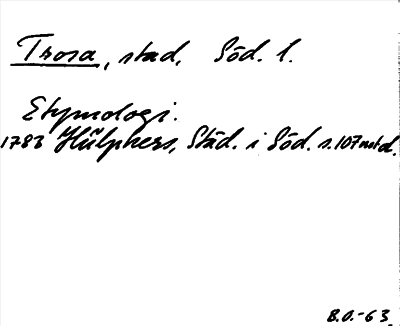 Trosa, stad, Söd. l.
Etymologi.
1783 Hülphers, Städ. i Söd. s. 107 not d.
B.O.-63.